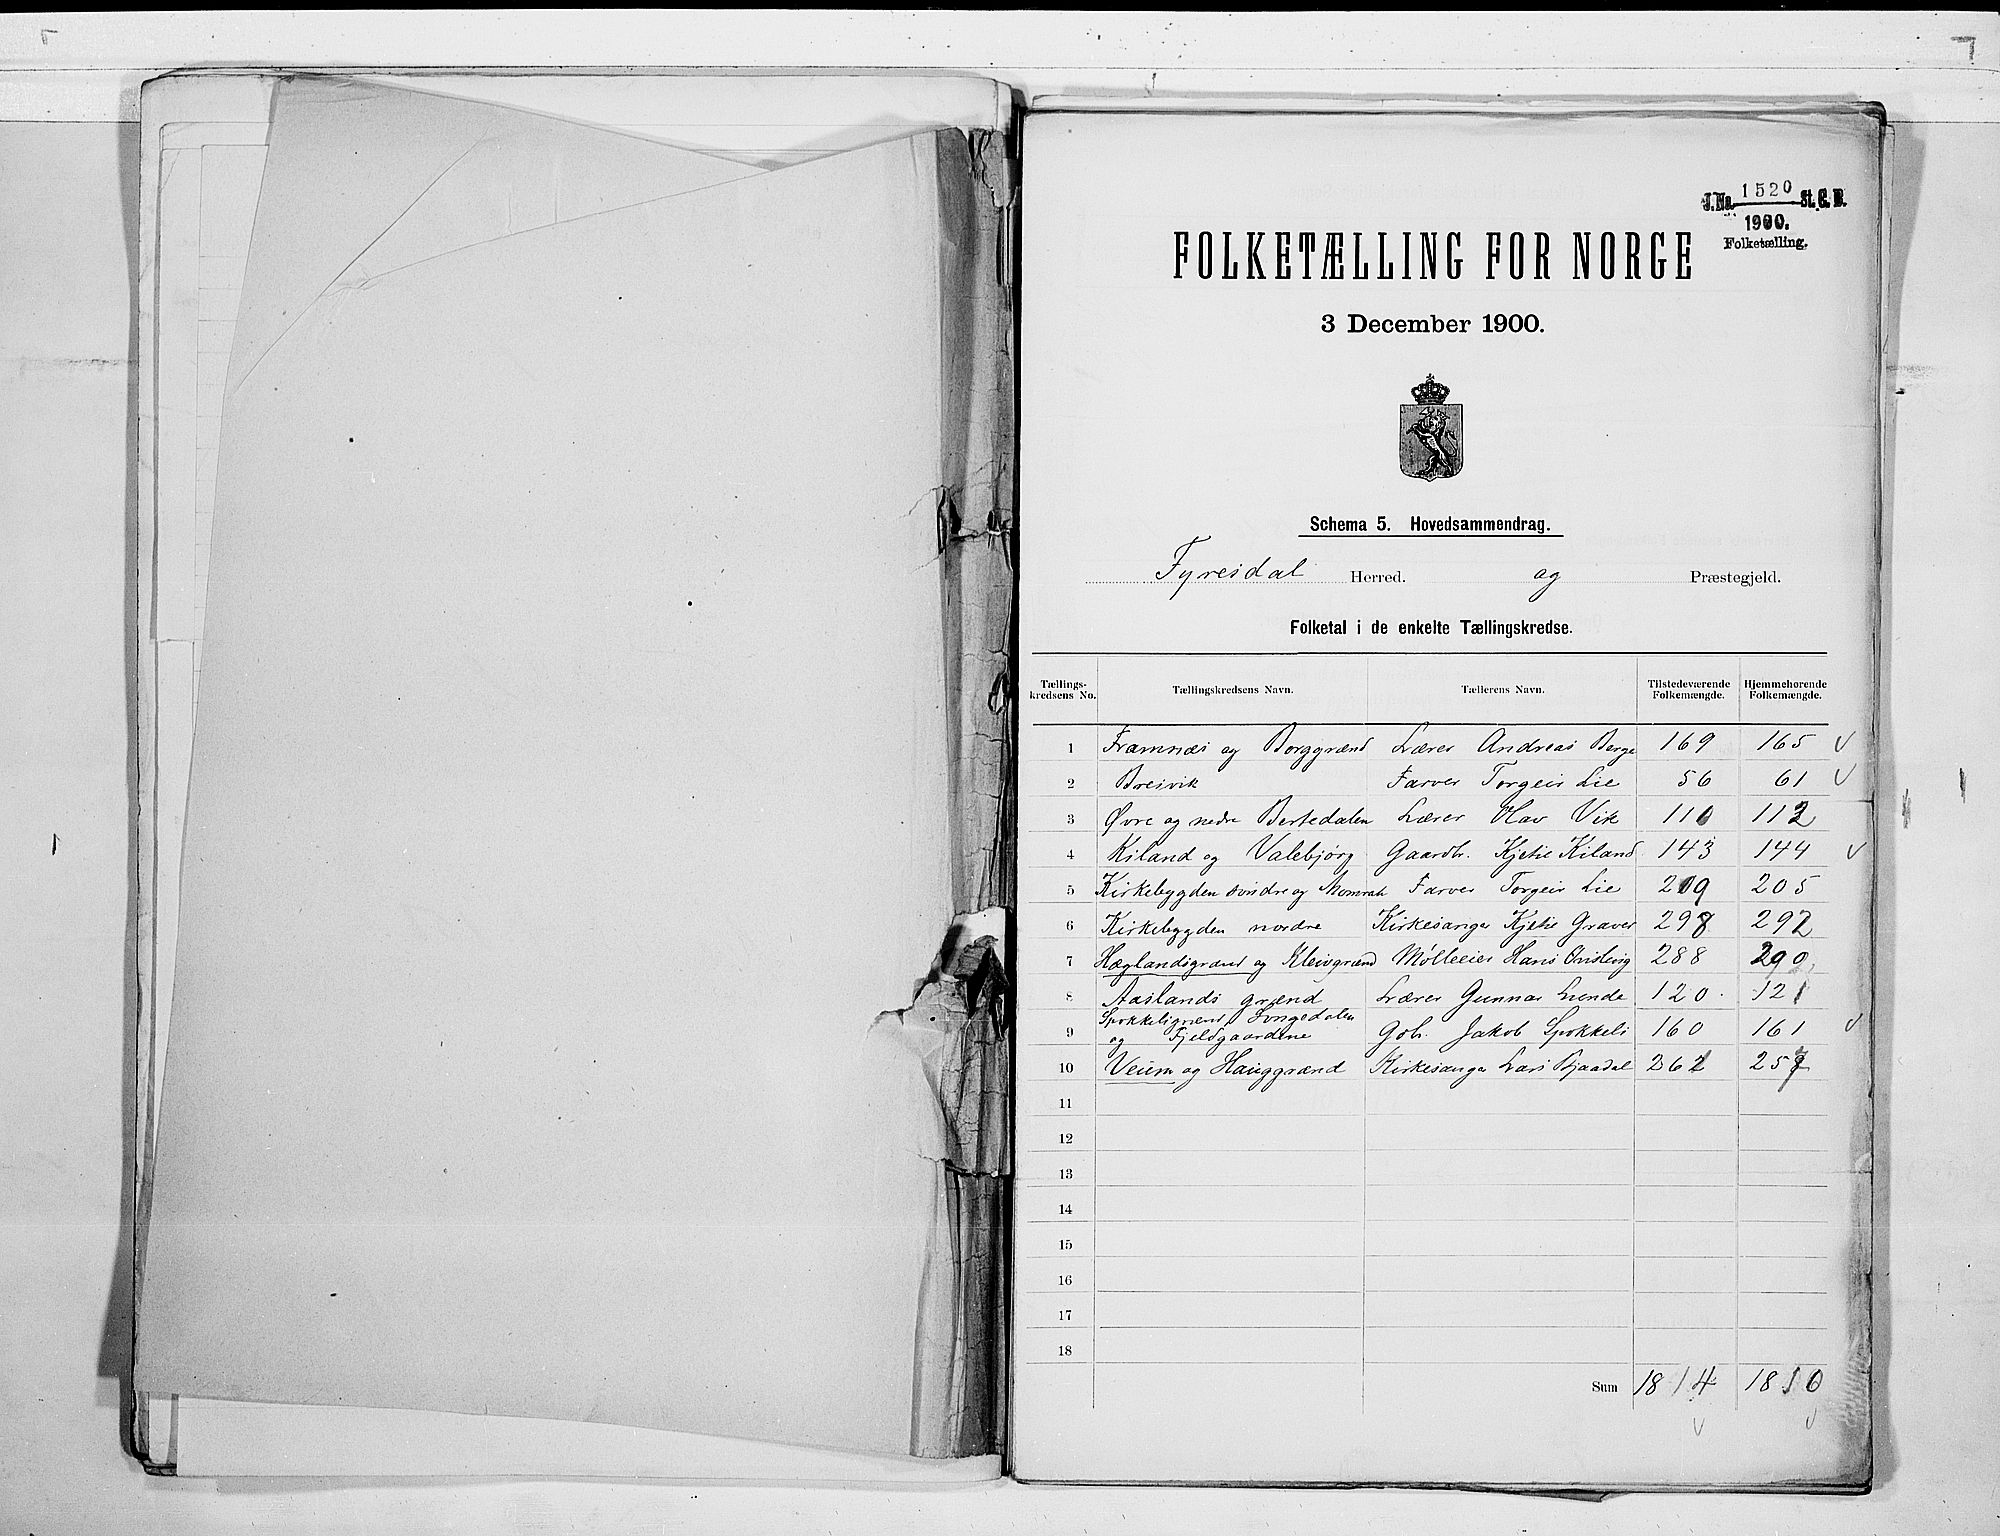 J.No. 1520 St. C. B.
1900.
Folketælling.
FOLKETÆLLING FOR NORGE
3 December 1900.
Schema 5. Hovedsammendrag.
Fyresdal Herred. og Præstegjeld.
Folketal i de enkelte Tællingskredse.
Tællings-kredsens No. Tællingskredsens Navn. Tællerens Navn. Tilstedeværende Folkemængde. Hjemmehørende Folkemængde.
1 Framnæs og Borggrænd Lærer Andreas Berge 169 165
2 Breivik Farver Torgeir Lie 56 61
3 Øvre og nedre Bertedalen Lærer Olav Vik 110 112
4 Kiland og Valebjørg Gaardbr. Kjetil Kiland 143 144
5 Kirkebygden søndre og Momrak Farver Torgeir Lie 209 205
6 Kirkebygden nordre Kirkesanger Kjetil Graver 298 292
7 Hæglandsgrænd og Kleivgrænd Mølleeier Hans 288 290
8 Aaslands grænd Lærer Gunnar Liende 120 121
9 Spokkeligrænd, Songedalen
og Fjeldgaardene Gbr. Jakob Spokkeli 160 161
10 Veum og Hauggrænd Kirkesanger Lars Bjaadal 261 257
11
12
13
14
15
16
17
18
Sum 1814 1810